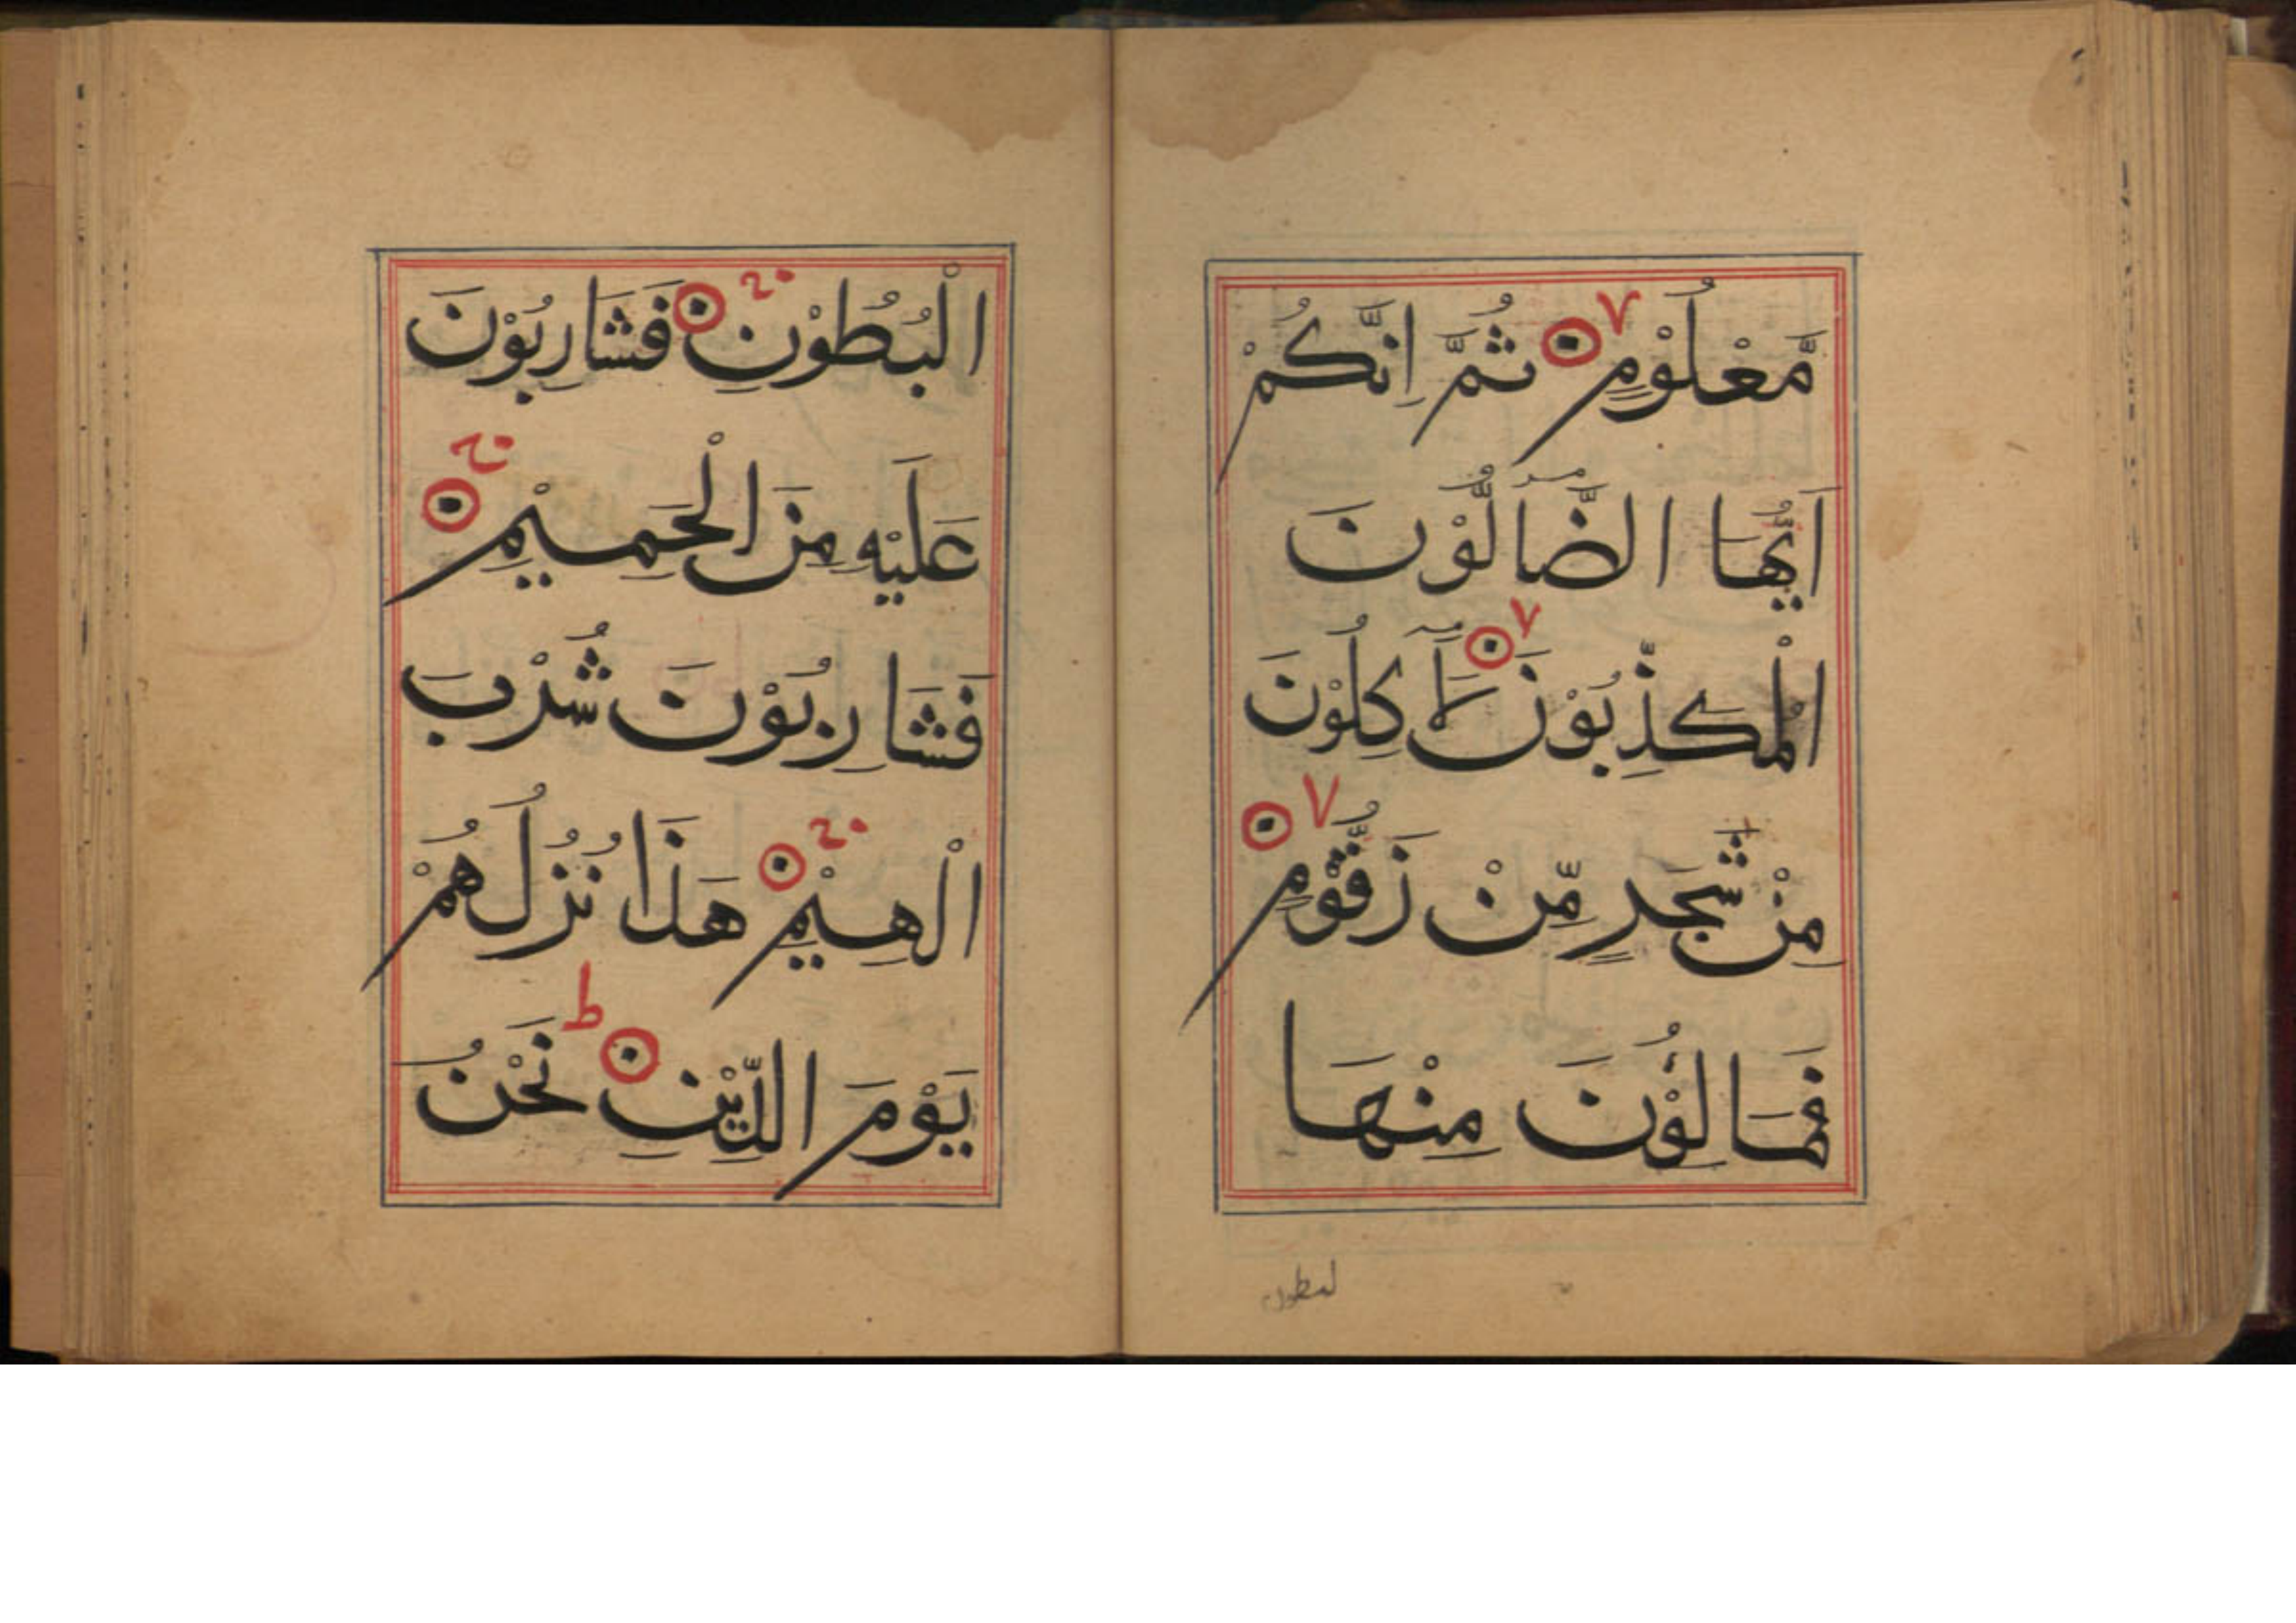 مَّعْلُوْمٍ ۷ ثُمَّ اِنَّكُمْ
اَيُّهَا الضَّآلُّوْنَ
الْمُكَذِّبُوْنَ ۷ لَاٰكِلُوْنَ
مِنْ شَجَرٍ مِّنْ زَقُّوْمٍ ۷
فَمَالِؤُنَ مِنْهَا
لبطون
الْبُطُوْنِ فَشَارِبُوْنَ
عَلَيْهِ مِنَ الْحَمِيْمِ
فَشَارِبُوْنَ شُرْبَ
الْهِيْمِ هَذَا نُزُلُهُمْ
يَوْمَ الدِّيْنِ ط نَحْنُ